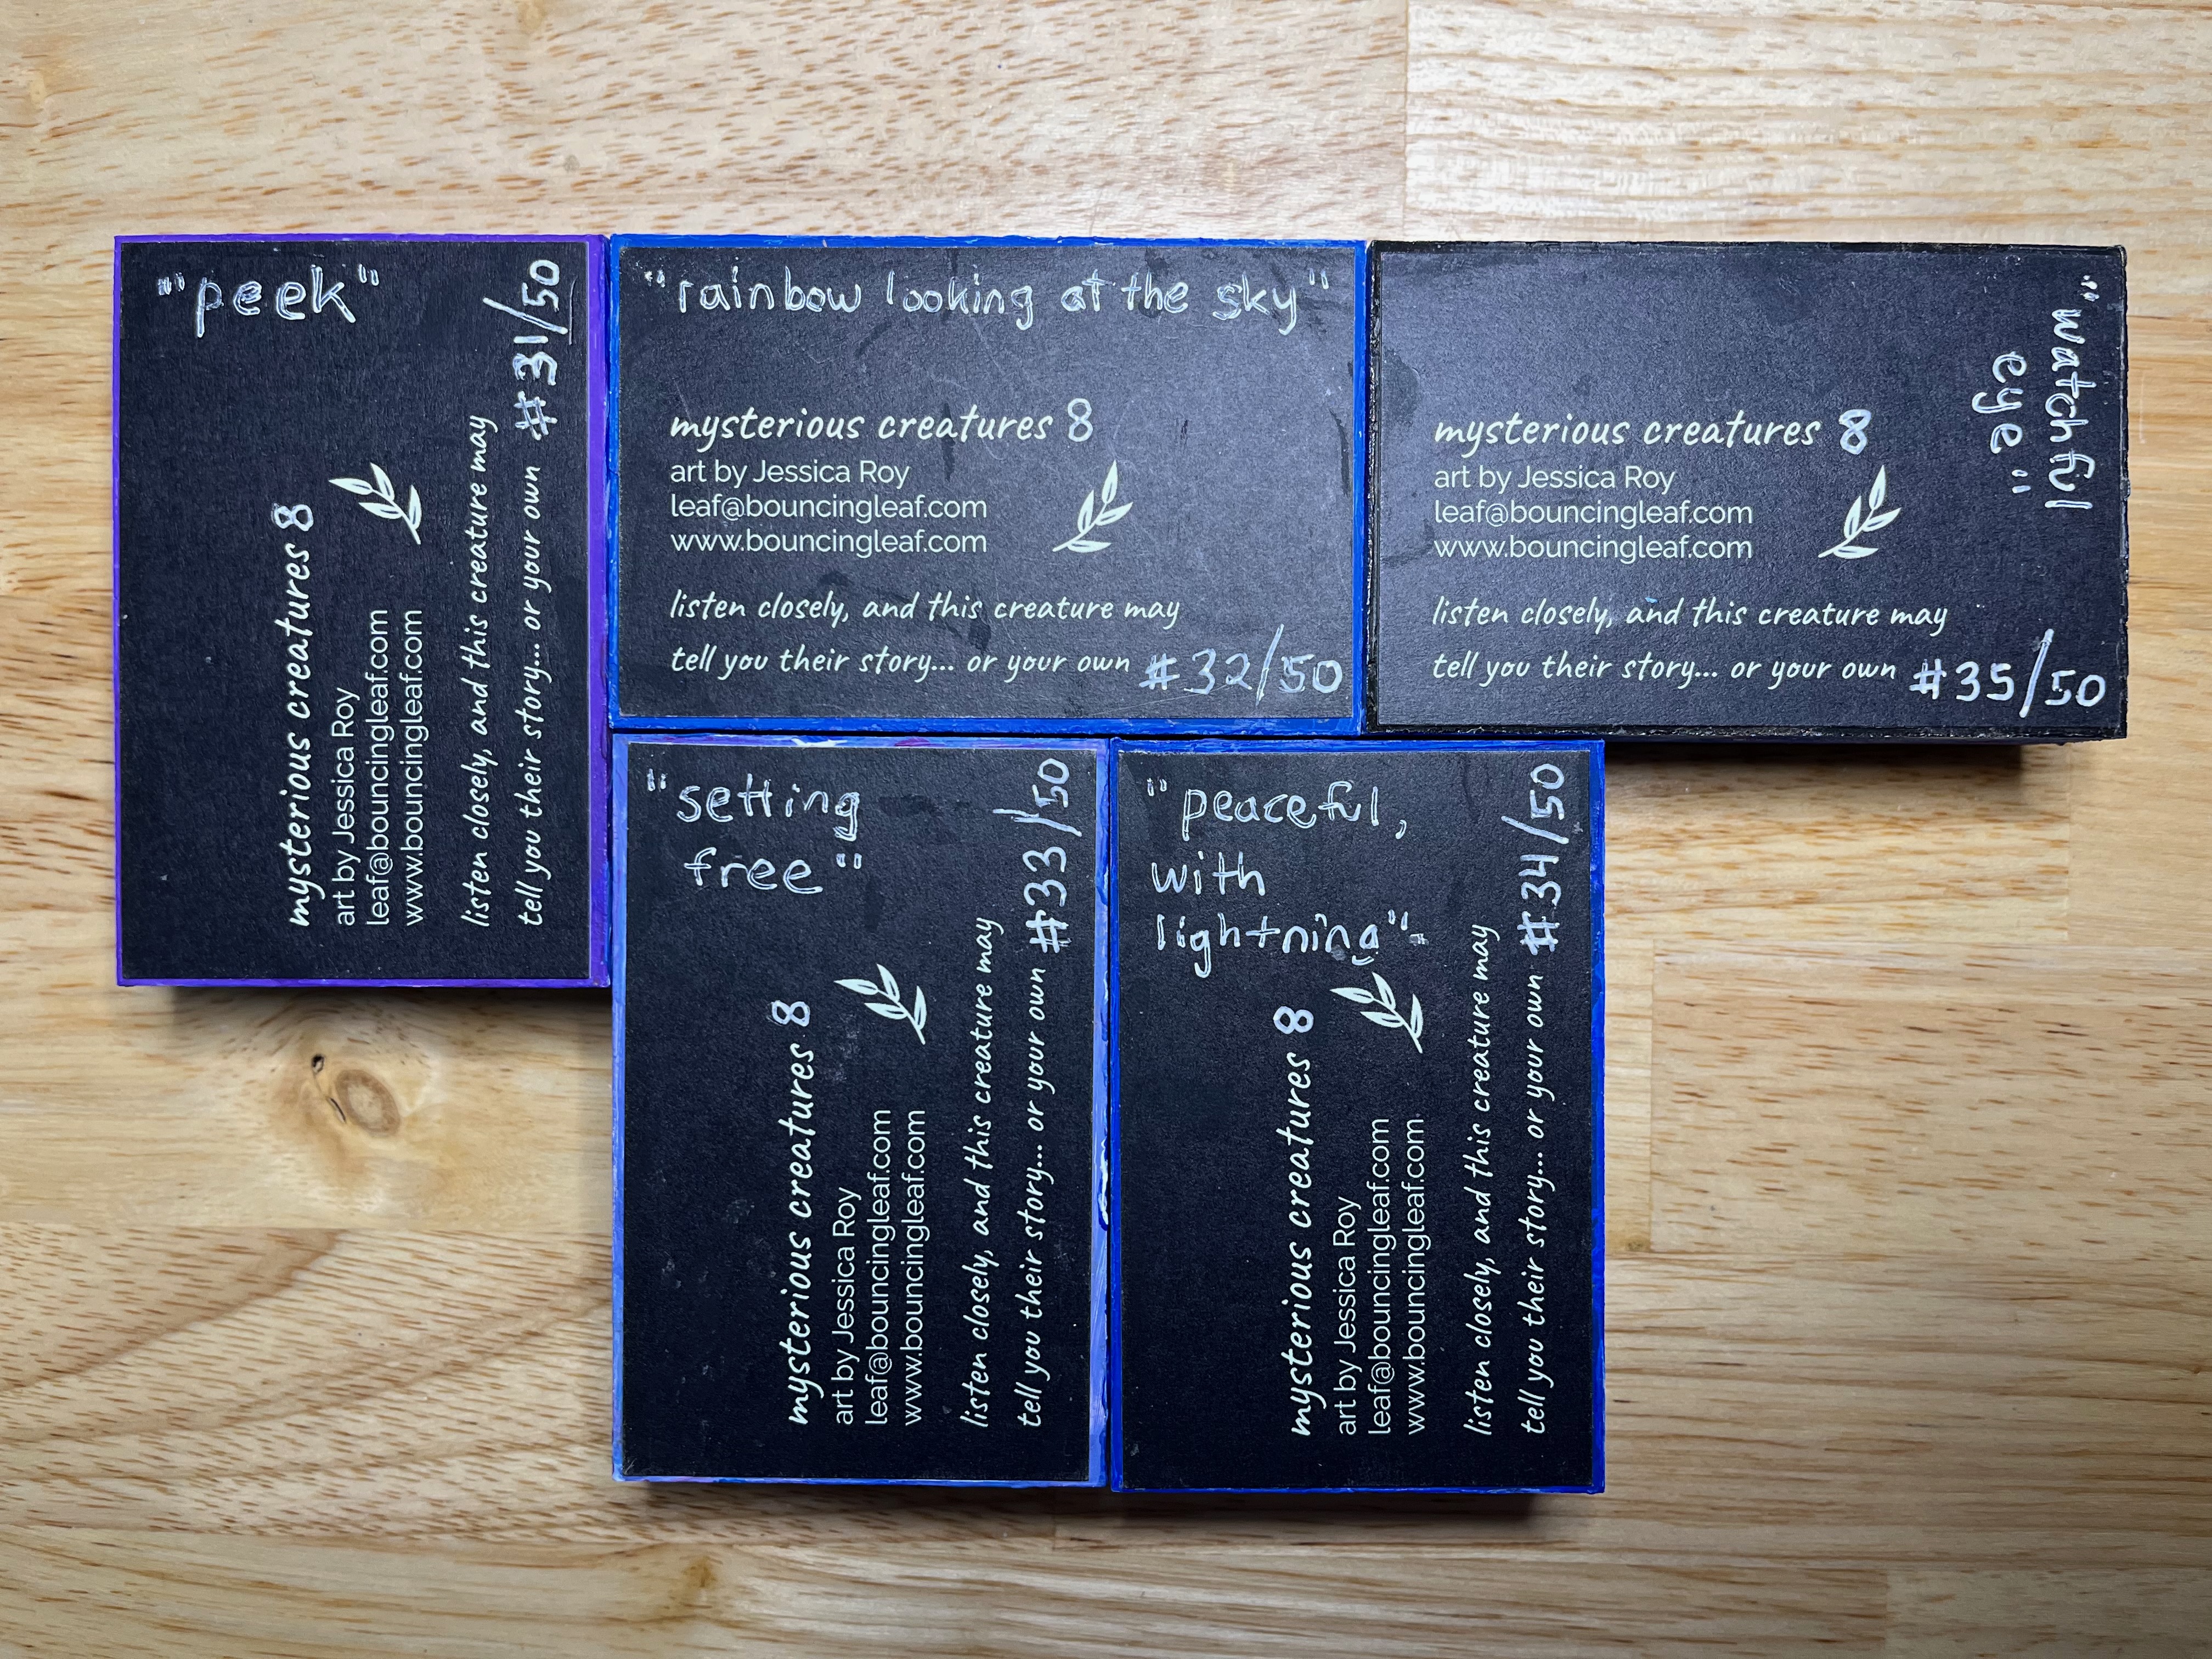 "peek"
mysterious creatures 8
art by Jessica Roy
leaf@bouncingleaf.com
www.bouncingleaf.com
listen closely, and this creature may
tell you their story... or your own #31/50
"rainbow looking at the sky"
mysterious creatures 8
art by Jessica Roy
leaf@bouncingleaf.com
www.bouncingleaf.com
listen closely, and this creature may
tell you their story... or your own #32/50
"watchful
eye"
mysterious creatures 8
art by Jessica Roy
leaf@bouncingleaf.com
www.bouncingleaf.com
listen closely, and this creature may
tell you their story... or your own #35/50
"setting
free"
mysterious creatures 8
art by Jessica Roy
leaf@bouncingleaf.com
www.bouncingleaf.com
listen closely, and this creature may
tell you their story... or your own #33/50
"peaceful,
with
lightning"
mysterious creatures 8
art by Jessica Roy
leaf@bouncingleaf.com
www.bouncingleaf.com
listen closely, and this creature may
tell you their story... or your own #34/50